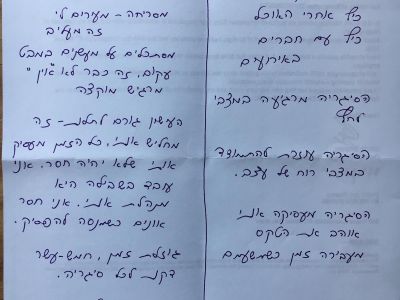 כיף אחרי האוכל
כיף עם חברים
באירועים
הסיגריה מרגיעה במצבי
לחץ
הסיגריה עוזרת להתמודד
במצבי רוח של עצב.
הסיגריה מעסיקה אותי
אוהב את הטקס
מעבירה זמן כשמשעמם
מסריחה - מעירים לי
זה מעליב
מסתכלים על מעשנים במבט
עקום, זה כבר לא "אין"
מרגיש מוקצה
העישון גורם לחולשות - זה
מחליש אותי, כל הזמן מעסיק
אותי שלא יהיה חסר. אני
עובד בשבילה היא
מנהלת אותי. אני חסר
אונים כשמנסה להפסיק.
גוזלת זמן, חמש-עשר
דקות לכל סיגריה.